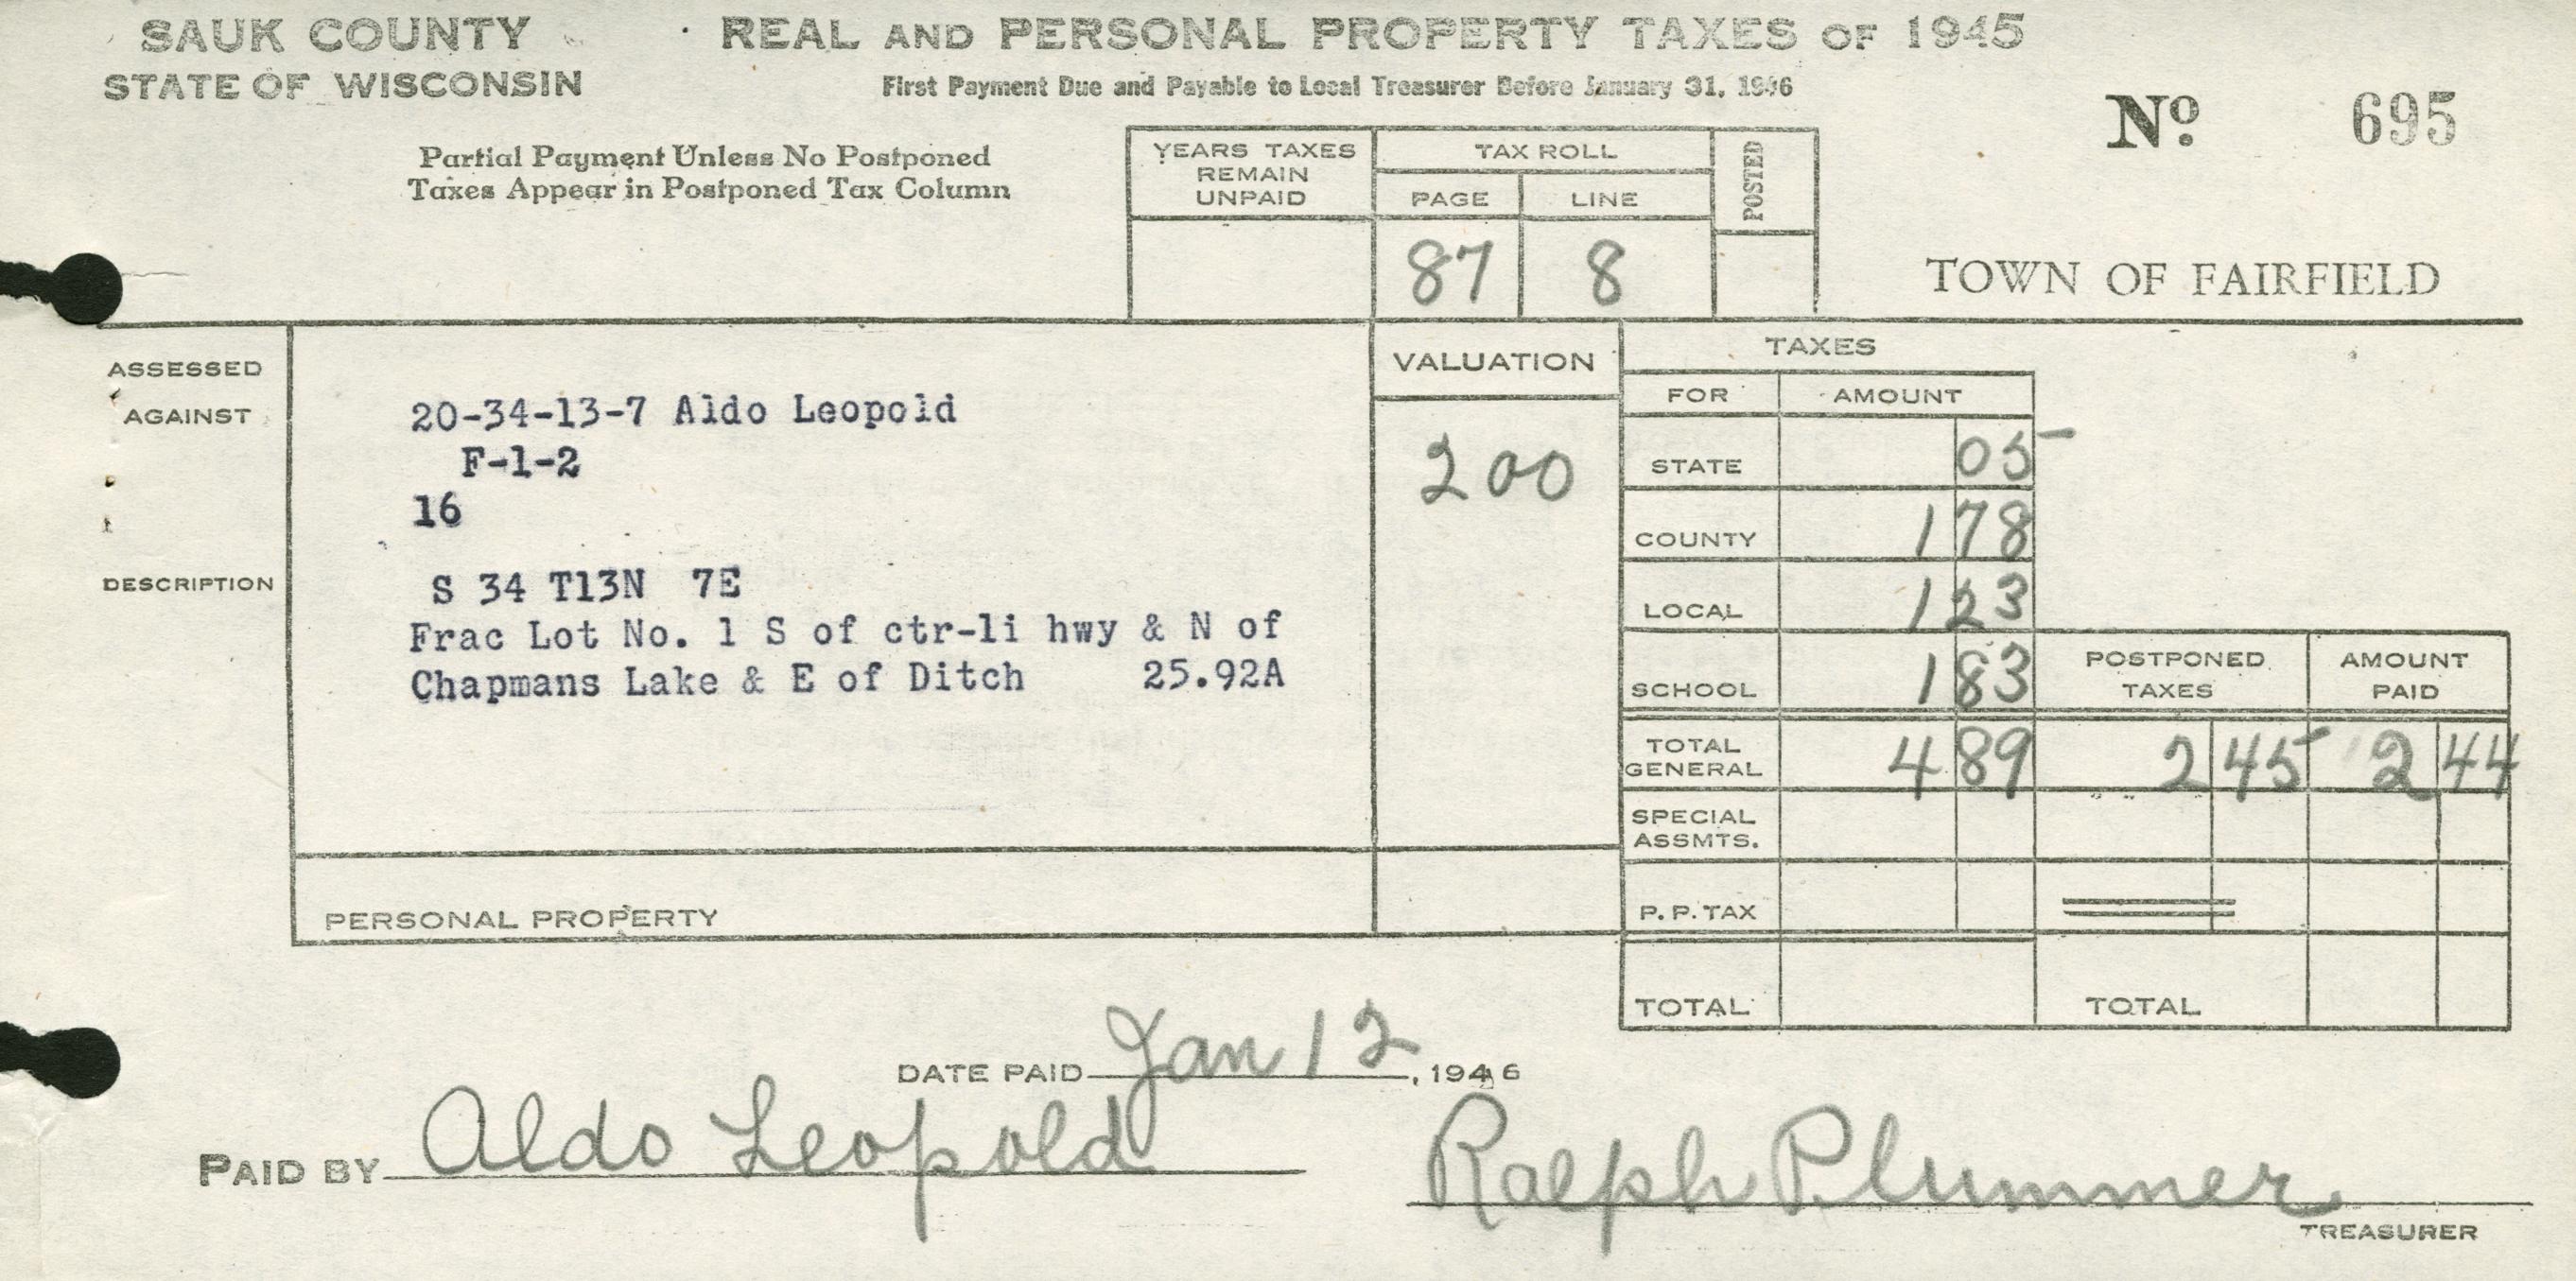 SAUK COUNTY
STATE OF WISCONSIN
REAL AND PERSONAL PROPERTY TAXES OF 1945
First Payment Due and Payable to Local Treasurer Before January 31, 1946
Partial Payment Unless No Postponed
Taxes Appear in Postponed Tax Column
YEARS TAXES
REMAIN
UNPAID
TAX ROLL
PAGE LINE
POSTED
87 8
Nº 695
TOWN OF FAIRFIELD
ASSESSED
AGAINST
20-34-13-7 Aldo Leopold
F-1-2
16
DESCRIPTION
S 34 T13N 7E
Frac Lot No. 1 S of ctr-li hwy & N of
Chapmans Lake & E of Ditch 25.92A
PERSONAL PROPERTY
VALUATION
200
TAXES
FOR AMOUNT
STATE 05
COUNTY 1 78
LOCAL 1 23
SCHOOL 1 83
POSTPONED
TAXES
AMOUNT
PAID
TOTAL
GENERAL 4 89 2 45 2 44
SPECIAL
ASSMTS.
P. P. TAX
TOTAL TOTAL
DATE PAID Jan 12, 1946
PAID BY Aldo Leopold
Ralph Plummer
TREASURER